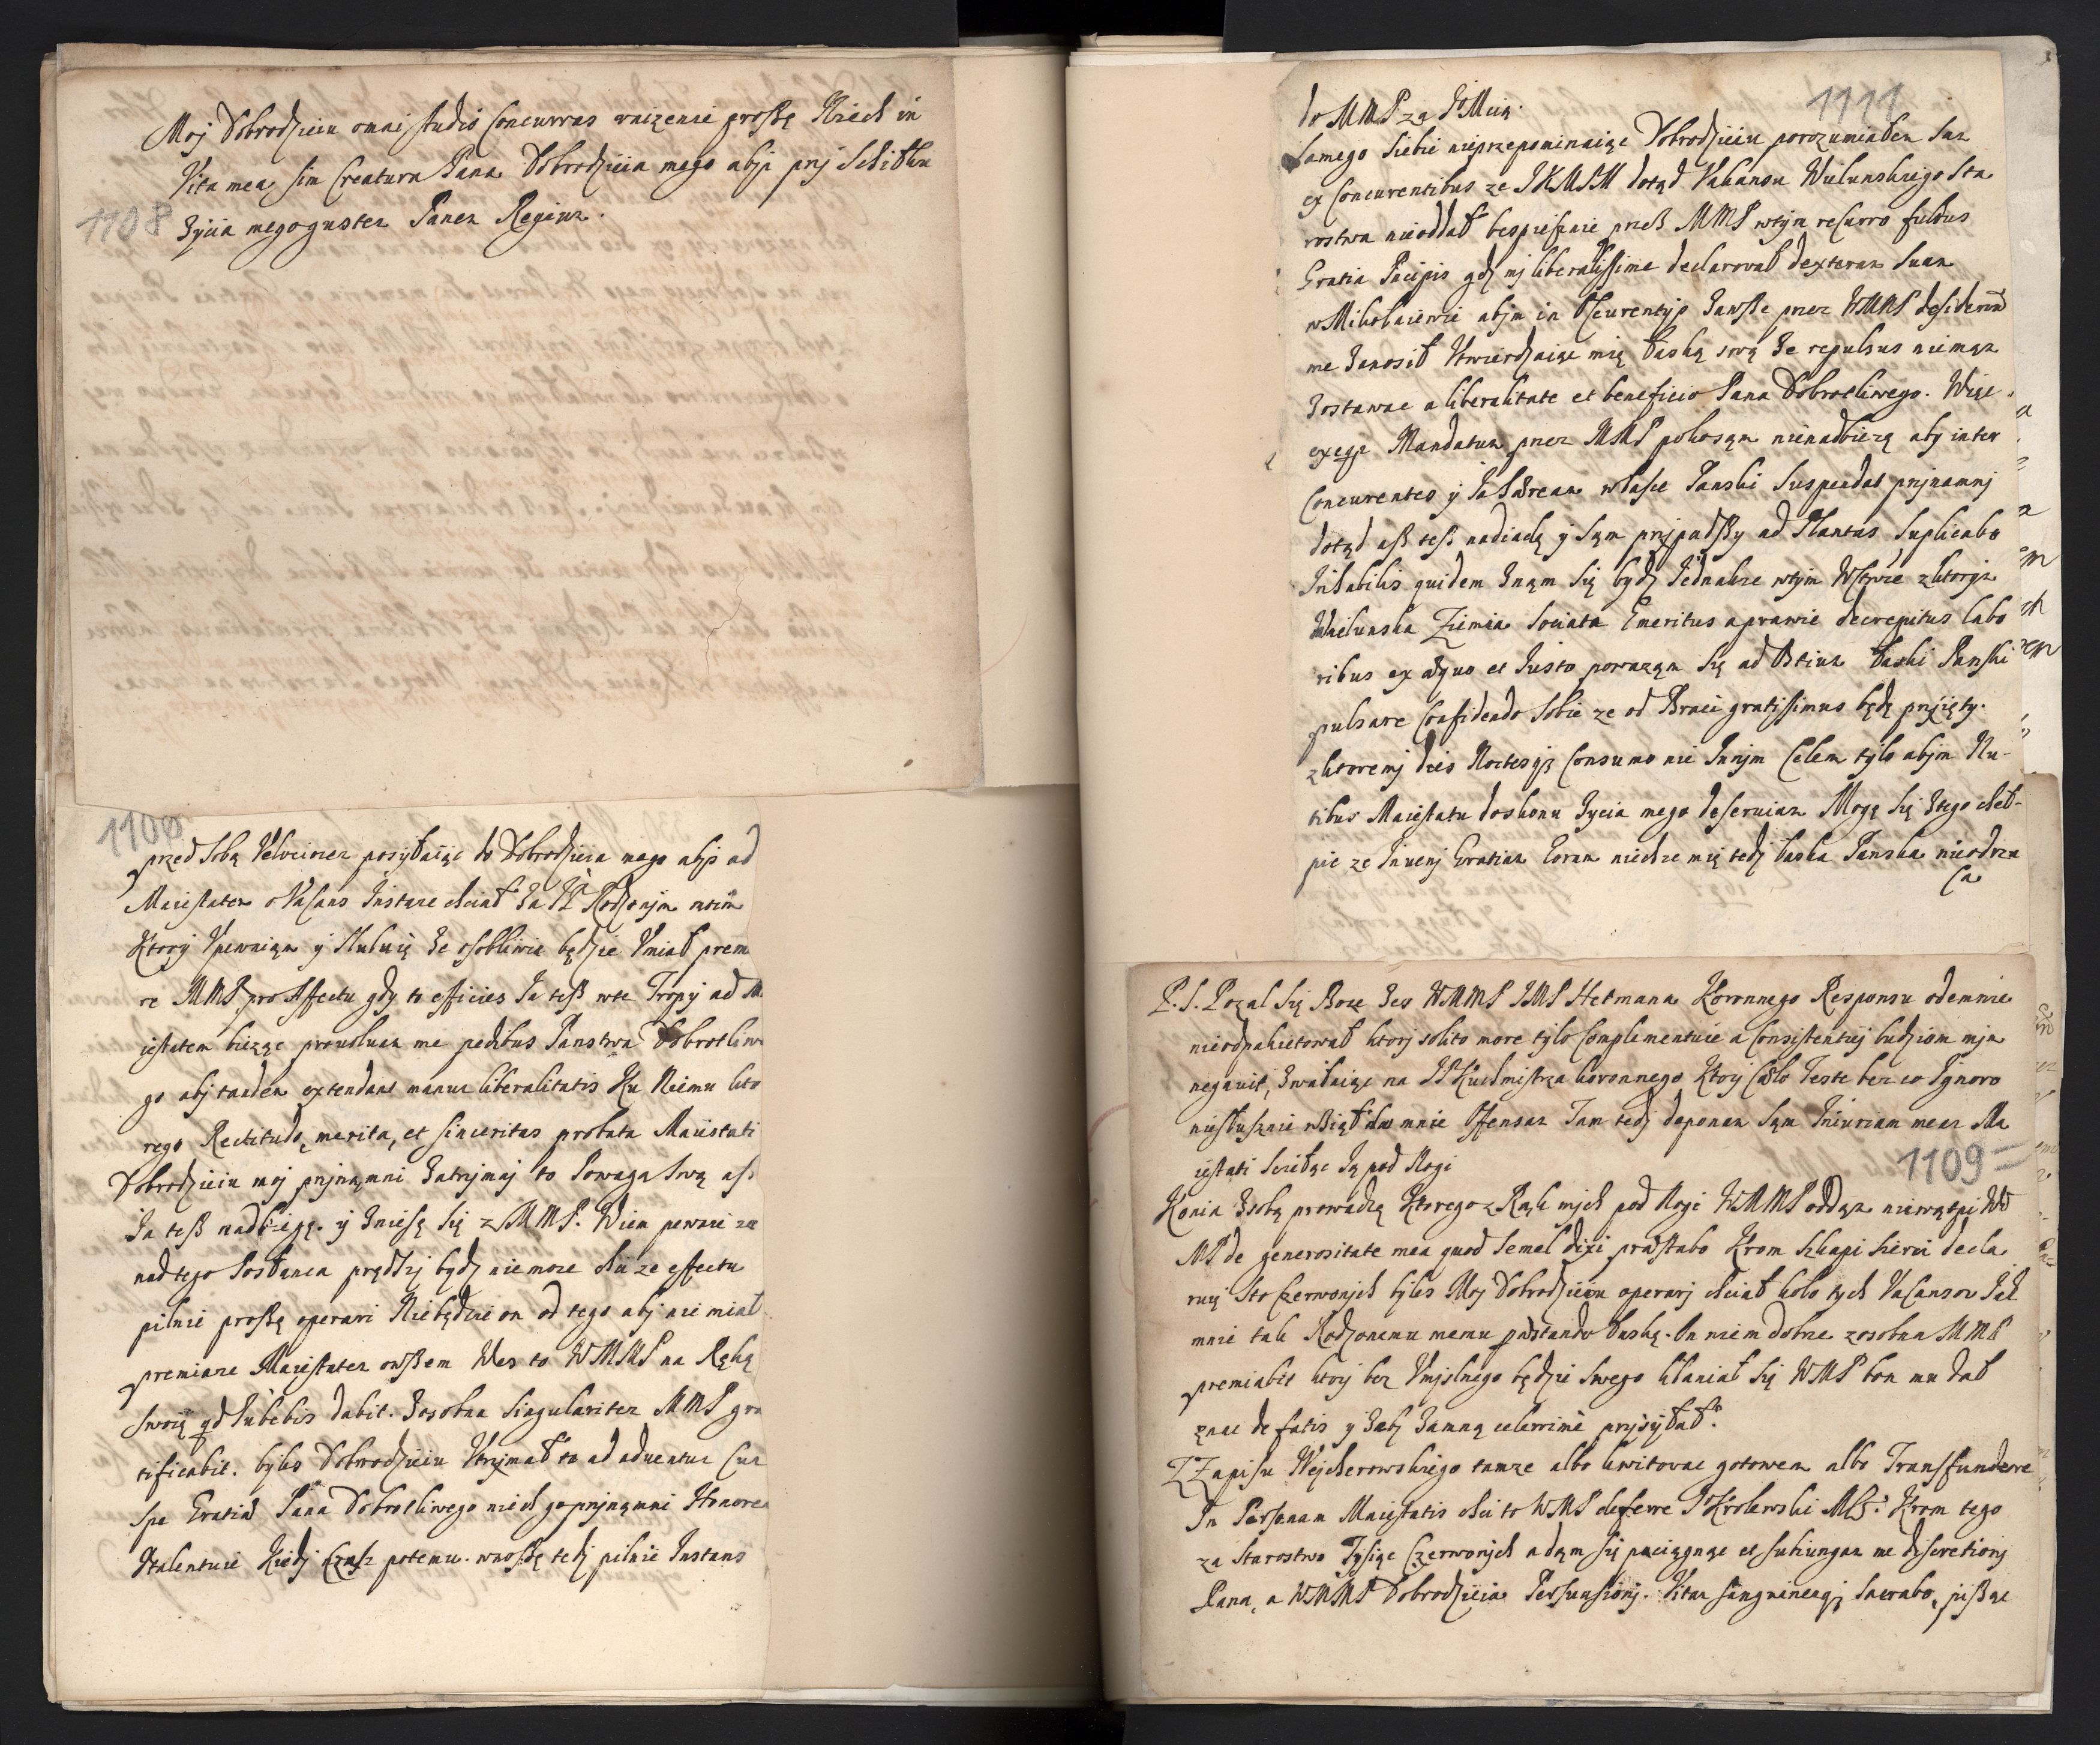 Moj Dobrodzieiu omni studio Concurras unizenie proszę Niech in
Vita mea sim Creatura Pana Dobrodzieia mego abji prȷ Schiłku
1108
Zȷcia mego gustem Panem Regium.
1100
przed Sobą posyłaiąc do Dobrodzieia mego abȷs ad
Maiestatem oVacans Instare chciał Za Rodzonjm moim
Ktory Vpewniąm ȷ Slubuię Ze osobliwie będzie Vmiał prem
re MMP pro Affectu gdy to efficies Ia tesz wte Tropȷ ad M.
iestatem bieząc prouoluam me pedibus Panstwa Dobrotliw
go abȷ tandem extendant manum liberalitatis Ku Niemu kto
rego Rectitudo, merita, et sinceritas probata Maiestati
Dobrodzieiu moȷ prȷnąmni Zatrzȷmaȷ to Powaga Swą asz
Ia tesz nadbiezę. ȷ Zniesę Się z MMP. Wiem pewnie ze
nad tego Posłanca prędszȷ bȷdz niemoze chciȷ ze effectu
pilnie proszę operari Niebędzie on od tego abȷ nie miał
premiare Maiestatem owszem Wes to WMMP na Rękę
Swoię qd Iubebis dabit. Zosobna Singulariter MMP gra
tificabit. bȷles Dobrodzieiu Vtrzȷmał to ad aduentum Cum
spe Gratiæ Pana Dobrotliwego niech go prȷnąmni Honorem
Vtalentuie Kiedȷ Czasz potemu. wnoszę tedȷ pilnie Instans
1111
do MMP zą JoMcią.
Samego Siebie nieprzepominaiąc Dobrodzieiu porozumiałem Sam
ex Concurentibus ze JKMSM dotąd Vakansu Wielunskiego Sta
rostwa nieoddał bespiesznie przesz MMP wtȷm recurro fultus
Gratia Principis gdȷ mȷ liberalissime declarował dexteram Suam
wMikołaiewie abȷm in Occurentȷs Zawsze przez WMMP desideria
me Zanosił Vtwierdzaiąc mię łaską swą Ze repulsus niemąm
Zostawac a liberalitate et beneficio Pana Dobrotliwego. Więc
exeqr Mandatum przez MMP pokosąm nienadbiezę aby inter
Concurentes ȷ Ia Lauream własce Panski Suspendat prȷnamnȷ
dotąd asz tesz nadiadę ȷ Sąm prȷpadszȷ ad Plantas Suplicabo
Inhabilis quidem Znąm Się bȷdz Iednakze wtȷm Vstęwie zktorȷm
Wielunska Ziemia Sociata Emeritus aprawie decrepitus labo
ribus ex æquo et Iusto powaząm Się ad Ostium łaski Panski
pulsare Confidendo Sobie ze od Braci gratissimus będę prȷięty.
zktoremȷ dies Noctesqȝ Consumo nie Innȷm Celem tȷlo abȷm Nu-
tibus Maiestatu doskonu Zycia mego deseruiam. Mogę Się Ztego chełt-
pic ze Inuenȷ Gratiam Coram niechze mię tedȷ łaska Panska nieodrzu
Ca
P. S. Pozal Się Boze Zes WMMP JMP Hetmana Koronnego Responsu odemnie
nieodpakietował ktorȷ solito more tȷlo Complementuie a Consistentiȷ ludziom mȷm
negauit, Zwałaiąc na JP Kuchmistrza koronnego Ktorȷ Casło Ieste bez co Ignoro
niesłusznie wziął do mnie Offensam Iam tedȷ deponam Sąm Iniuriam meam Ma
iestati Scieląc Ią pod Nogi
1109
Konia Zsobą prowadzę Ktorego z Rąk mȷch pod Nogi WMMP oddąm niewątpi WM
MP de generositate mea quod Semel dixi præstabo Krom Szkapi Sierci decla
ruię Sto Czerwonȷch bȷles Moȷ Dobrodzieiu operarȷ chciał kolo tȷch VaCansow Iak
mnie tak Rodzonemu memu præstando łaskę. On niem dobrze zosobna MMP
premiabit ktorȷ bez Vmȷslnego będzie Swego kłaniał Się WMP bon mu dał
znac de fatis ȷ Zatȷ Zamną celerrime prȷsȷłał.
Z Zapisu Weȷcherowskiego tamze albo kwitowac gotowem albo Transfundere
In Personam Maiestatis chciȷ to WMP deferre J Krolewski Mci. Krom tego
za Starostwo Tȷsiąc Czerwonȷch adąm Się pociągnąc et subiungam me discretionȷ
Pana, a WMMP Dobrodzieia Persuasionȷ. Vitam Sanguinemqȝ Sacrabo, pisząc